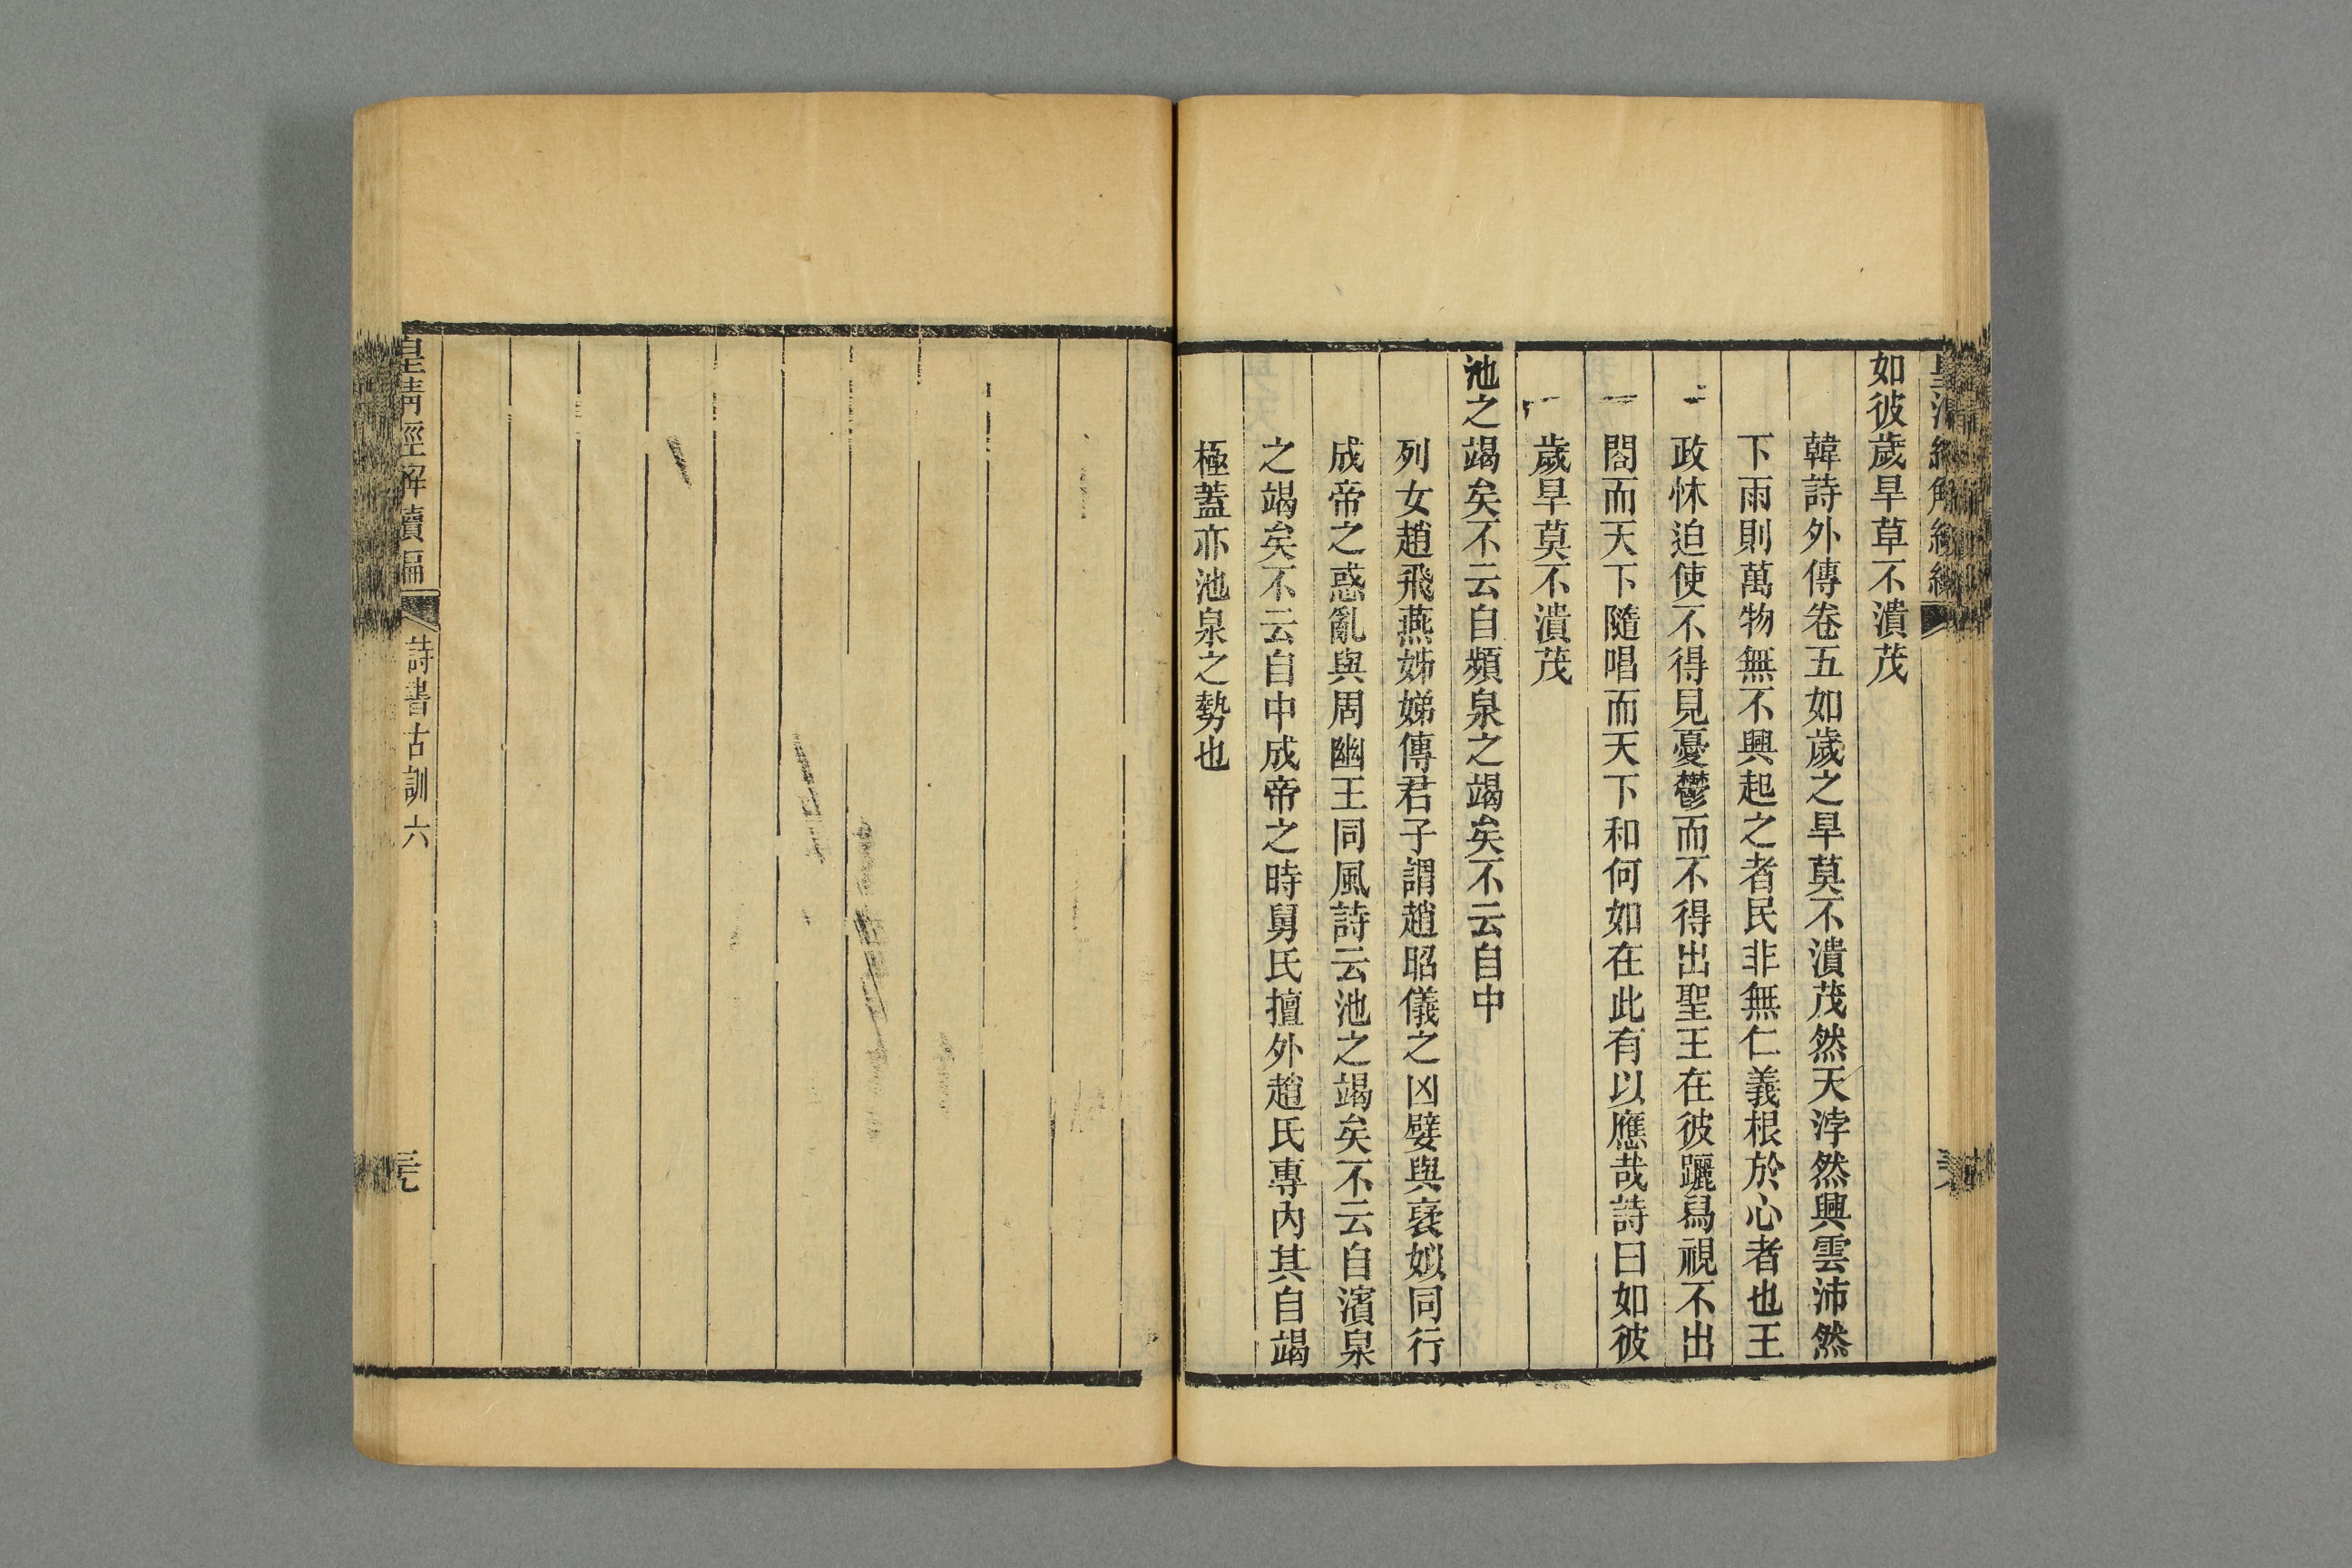 如彼歲旱草不潰茂
韓詩外傳卷五如歲之旱莫不潰茂然天浡然興雲沛然
下雨則萬物無不興起之者民非無仁義根於心者也王
政怵迫使不得見憂鬱而不得出聖王在彼躧舄視不出
閤而天下隨唱而天下和何如在此有以應哉詩曰如彼
歲旱莫不潰茂
池之竭矣不云自頻泉之竭矣不云自中
列女趙飛燕姊娣傳君子謂趙昭儀之凶嬖與襃姒同行
成帝之惑亂與周幽王同風詩云池之竭矣不云自濱泉
之竭矣不云自中成帝之時舅氏擅外趙氏專內其自竭
極蓋亦池泉之勢也
皇清經解續編
詩書古訓六